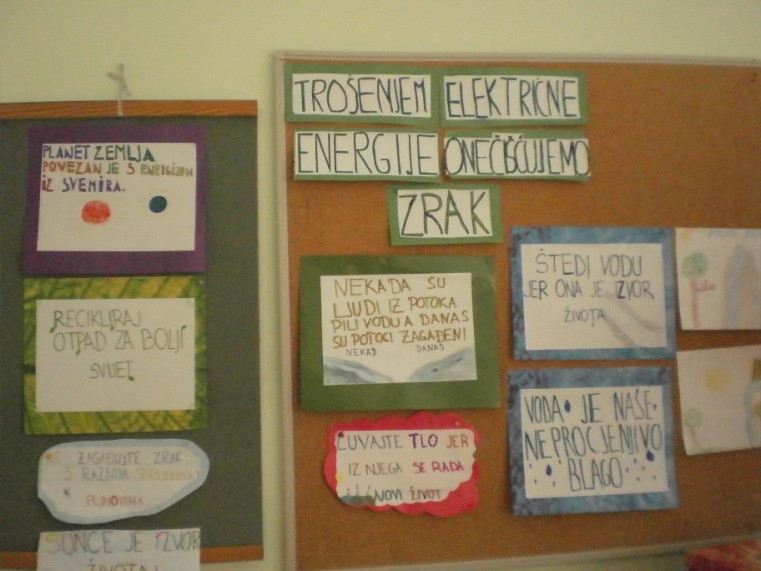 PLANET ZEMLJA
POVEZAN JE S ENERGIJOM
IZ SVEMIRA.
RECIKLIRAJ
OTPAD ZA BOLJI
SVIJET
NE ZAGAĐUJTE ZRAK
S RAZNIM
PLINOVIMA
SUNCE JE IZVOR
ŽIVOTA!
TROŠENJEM ELEKTRIČNE
ENERGIJE ONEČIŠĆUJEMO
ZRAK
NEKADA SU
LJUDI IZ POTOKA
PILI VODU A DANAS
SU POTOCI ZAGAĐENI
NEKAD DANAS
ČUVAJTE TLO JER
IZ NJEGA SE RAĐA
NOVI ŽIVOT
ŠTEDI VODU
JER ONA JE IZVOR
ŽIVOTA
VODA JE NAŠE
NEPROCJENJIVO
BLAGO